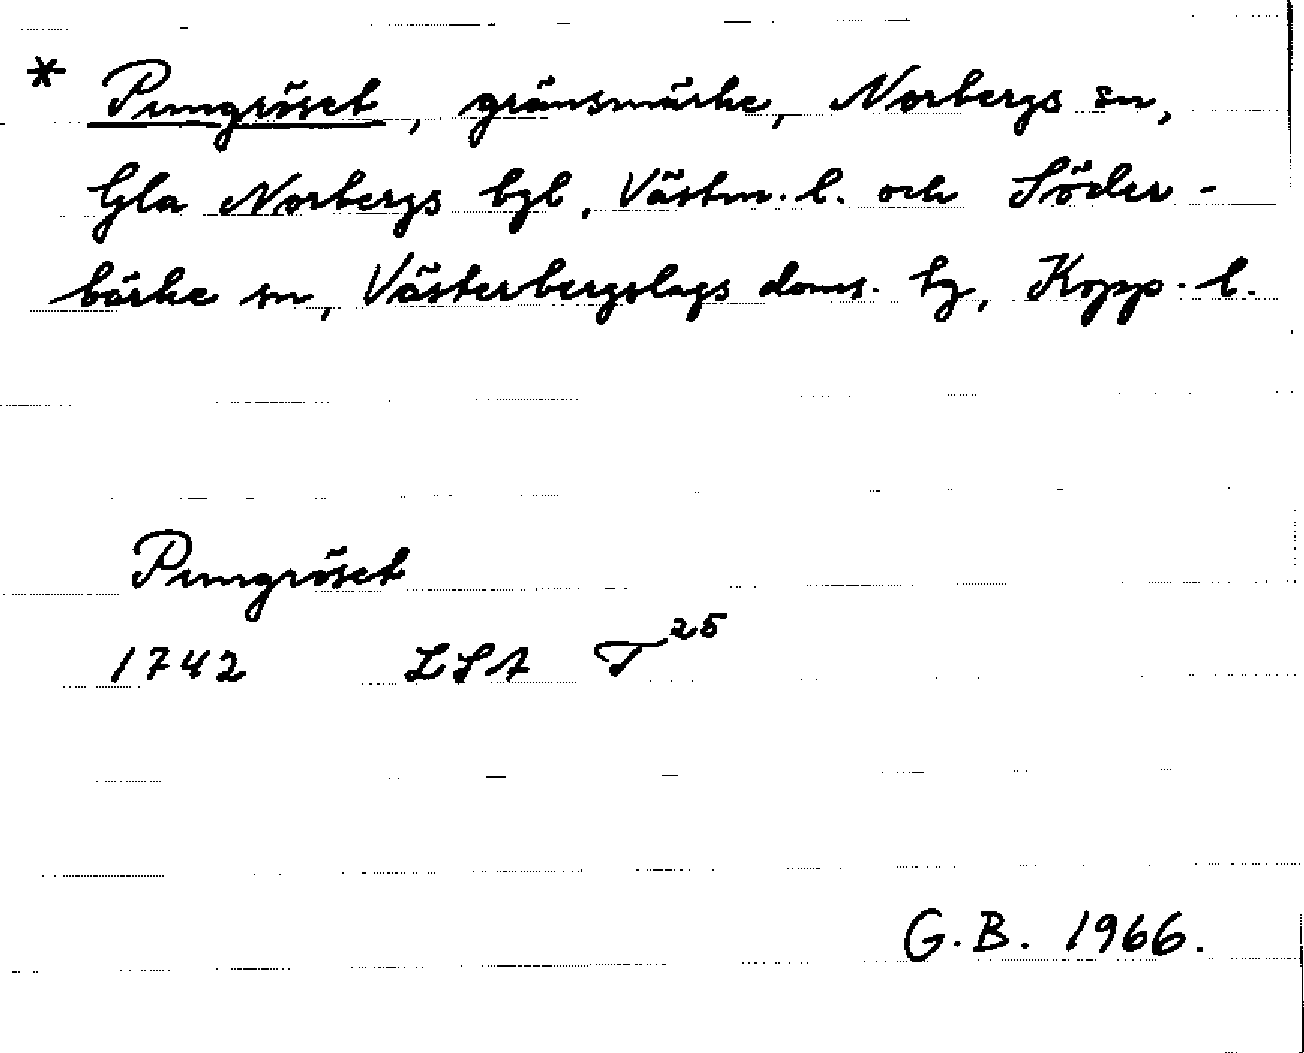 * Pungröset, gränsmärke, Norbergs sn,
Gla Norbergs bgl, Västm. l. och Söder-
bärke sn, Västerbergslags doms. hg, Kopp. l.
Pungröset
1742 LSA T25
G.B. 1966.